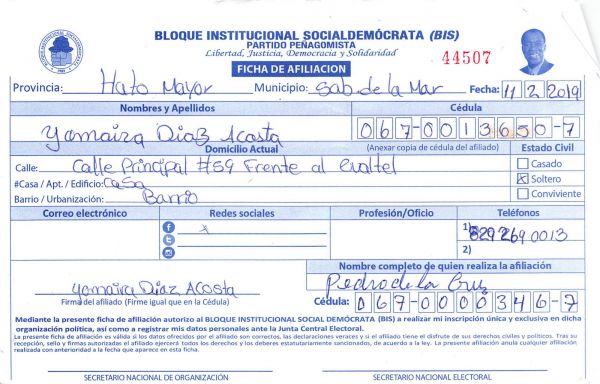 BLOQUE INSTITUCIONAL SOCIALDEMÓCRATA (BIS)
PARTIDO PEÑAGOMISTA
Libertad, Justicia, Democracia y Solidaridad
44507
FICHA DE AFILIACION
Provincia: Hato Mayor Municipio: Sab. de la Mar Fecha: 11 2 2019
Nombres y Apellidos Cédula
Yomaira Diaz Acosta 067-0013650-7
Domicilio Actual (Anexar copia de cédula del afiliado) Estado Civil
Calle: Calle Principal #59 Frente al Casado
#Casa / Apt. / Edificio: Casa X Soltero
Barrio / Urbanización: Barrio Conviviente
Correo electrónico Redes sociales Profesión/Oficio Teléfonos
x 1) 829 269 0013
2)
Nombre completo de quien realiza la afiliación
Yomaira Diaz Acosta Pedro de la Cruz
Firma del afiliado (Firme igual que en la Cédula) Cédula: 067-0000346-7
Mediante la presente ficha de afiliación autorizo al BLOQUE INSTITUCIONAL SOCIAL DEMÓCRATA (BIS) a realizar mi inscripción única y exclusiva en dicha
organización política, así como a registrar mis datos personales ante la Junta Central Electoral.
La presente ficha de afiliación es válida si los datos ofrecidos por el afiliado son correctos, las declaraciones veraces y si el afiliado tiene el disfrute de sus derechos civiles y políticos. Tras su
recepción, sello y firmas autorizadas el afiliado ejercerá todos los derechos y los deberes estatutariamente sancionados, de acuerdo a la ley. La presente afiliación anula cualquier afiliación
realizada con anterioridad a la fecha que aparece en esta ficha.
SECRETARIO NACIONAL DE ORGANIZACIÓN SECRETARIO NACIONAL ELECTORAL